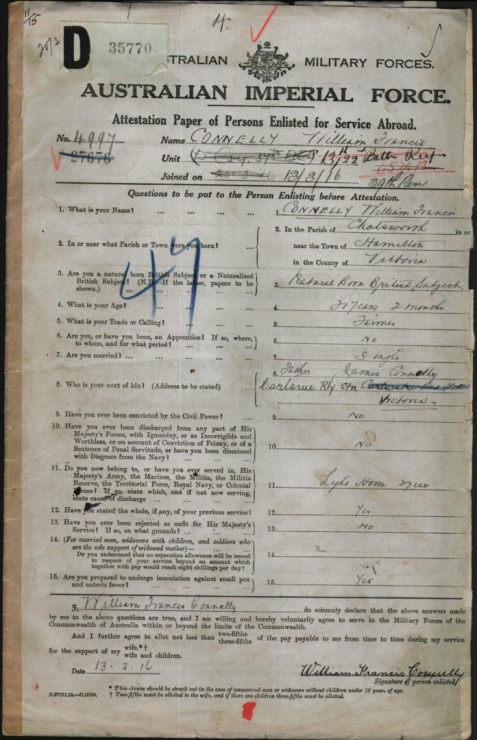 11/15
D 35770
AUSTRALIAN MILITARY FORCES.
AUSTRALIAN IMPERIAL FORCE.
Attestation Paper of Persons Enlisted for Service Abroad.
No. 4997 Name CONNELLY William Francis
27676 Unit
Joined on 13/3/16 39th Bn
Questions to be put to the Person Enlisting before Attestation.
1. What is your Name? ... ... ... ... 1. CONNELLY William Francis
2. In or near what Parish or Town were you born? ... 2. In the Parish of Chatsworth in or
near the Town of Hamilton
in the County of Victoria
3. Are you a natural born British Subject or a Naturalised
British Subject? (N.B.—If the latter, papers to be
shown.) ... ... ... ... 3. Natural Born British Subject
47
4. What is your Age? ... ... ... ... 4. years 2 months
5. What is your Trade or Calling? ... ... ... 5. Farmer
6. Are you, or have you been, an Apprentice? If so, where,
to whom, and for what period? ... ... ... 6. No
7. Are you married? ... ... ... ... 7. Single
8. Who is your next of kin? (Address to be stated) ... 8. Father James Connelly
Carlsrue Rly Stn
Victoria
9. Have you ever been convicted by the Civil Power? ... 9. No
10. Have you ever been discharged from any part of His
Majesty's Forces, with Ignominy, or as Incorrigible and
Worthless, or on account of Conviction of Felony, or of a
Sentence of Penal Servitude, or have you been dismissed
with Disgrace from the Navy? ... ... ... 10. No
11. Do you now belong to, or have you ever served in, His
Majesty's Army, the Marines, the Militia, the Militia
Reserve, the Territorial Force, Royal Navy, or Colonial
Forces? If so, state which, and if not now serving,
state cause of discharge ... ... ... 11. Light Horse
12. Have you stated the whole, if any, of your previous service? 12. Yes
13. Have you ever been rejected as unfit for His Majesty's
Service? If so, on what grounds? ... ... ... 13. No
14. (For married men, widowers with children, and soldiers who
are the sole support of widowed mother)—
Do you understand that no separation allowance will be issued
in respect of your service beyond an amount which
together with pay would reach eight shillings per day? 14.
15. Are you prepared to undergo inoculation against small pox
and enteric fever? ... ... ... ... 15. Yes
I, William Francis Connelly do solemnly declare that the above answers made
by me to the above questions are true, and I am willing and hereby voluntarily agree to serve in the Military Forces of the
Commonwealth of Australia within or beyond the limits of the Commonwealth.
And I further agree to allot not less than two-fifths three-fifths of the pay payable to me from time to time during my service
for the support of my wife.*† wife and children.
Date 13.3.16 William Francis Connelly
Signature of person enlisted.
* This clause should be struck out in the case of unmarried men or widowers without children under 18 years of age.
† Two-fifths must be allotted to the wife, and if there are children three-fifths must be allotted.